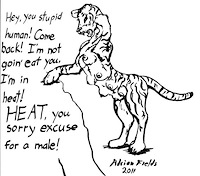 Hey, you stupid
human! Come
back! I'm not
goin' eat you.
I'm in
heat!
HEAT, you
sorry excuse
for a male!
Adrian Fields
2011